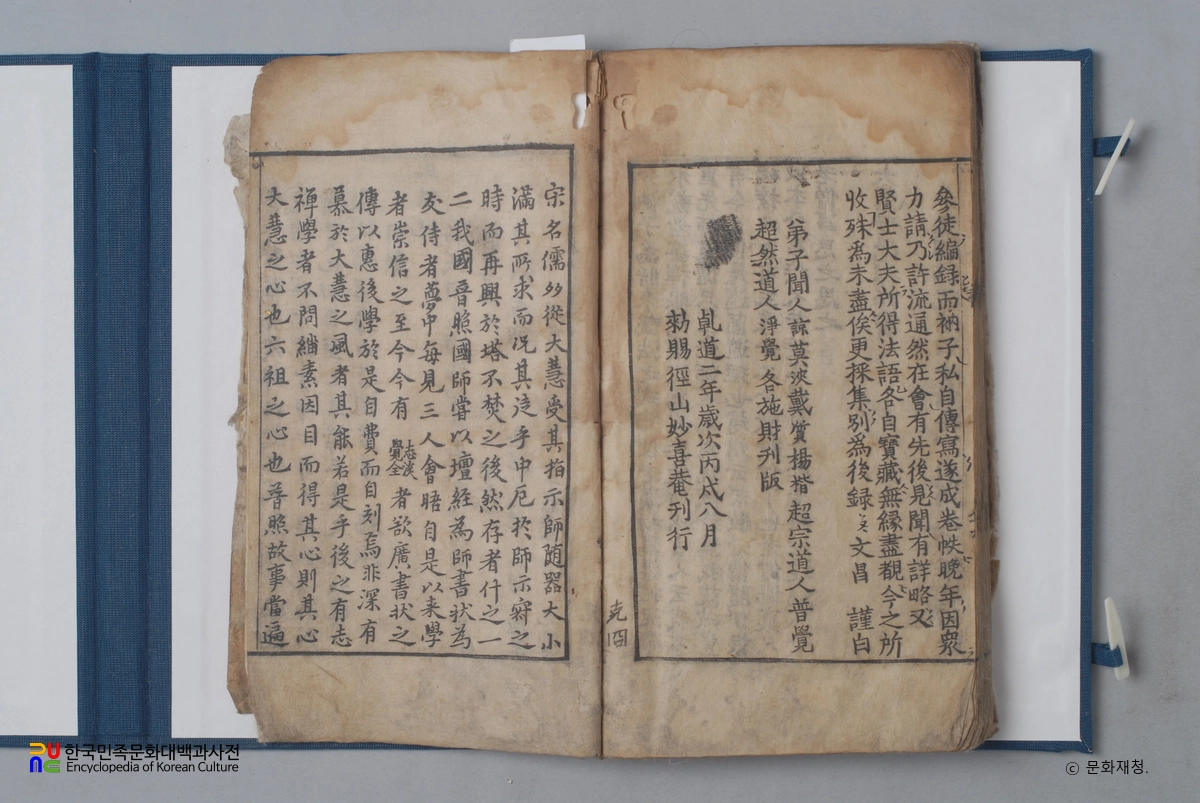 參徒編録而衲子私自傳寫遂成卷帙晚年因衆
力請乃許流通然在會有先後見聞有詳略又
賢士大夫所得法語各自寶藏無縁盡覩今之所
收殊為未盡俟更採集別為後録 文昌 謹白
弟子聞人諒莫淡戴質楊楷超宗道人普覺
超然道人淨覺各施財刊版
乹道二年歲次丙戌八月
勑賜徑山妙喜菴刊行
宋名儒多從大慧受其指示師随器大小
滿其所求而況其這乎中厄於師示寂之
時而再興於塔不焚之後然存者什之一
二我國普照國師嘗以壇經為師書狀為
友侍者夢中每見三人會晤自是以来學
者崇信之至今今有志淡覺全者欲廣書状之
傳以惠後學於是自費而自刻焉非深有
慕於大慧之風者其能若是乎後之有志
禅學者不問緇素因目而得其心則其心
大慧之心也六祖之心也普照故事當遍
한국민족문화대백과사전
Encyclopedia of Korean Culture
ⓒ 문화재청.